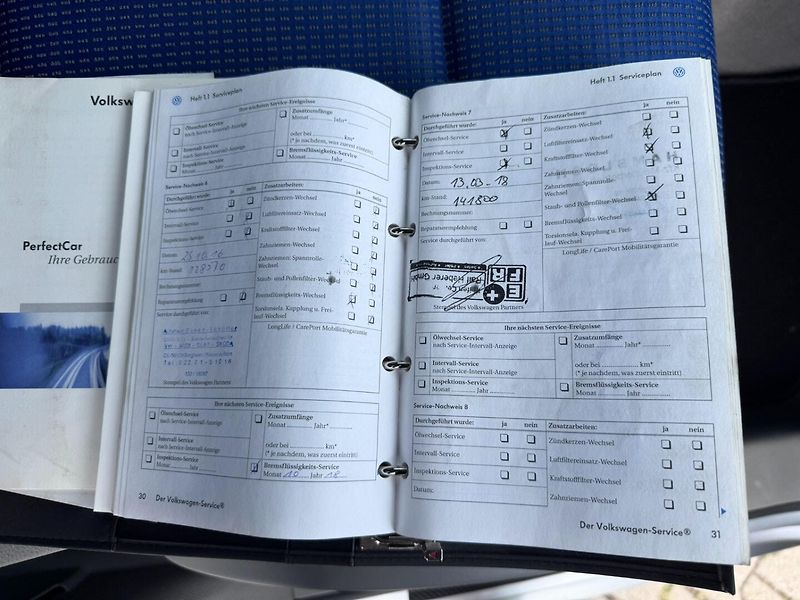 Volksw
PerfectCar
Ihre Gebrauc
Heft 1.1 Serviceplan
Ihre nächsten Service-Ereignisse
Ölwechsel-Service
nach Service-Intervall-Anzeige
Intervall-Service
nach Service-Intervall-Anzeige
Inspektions-Service
Monat ........ Jahr ........
Zusatzumfänge
Monat ........ Jahr*........
oder bei ........ km*
(* je nachdem, was zuerst eintritt)
Bremsflüssigkeits-Service
Monat ........ Jahr ........
Service-Nachweis 6
Durchgeführt wurde: ja nein
Ölwechsel-Service
Intervall-Service
Inspektions-Service
Datum:
km-Stand:
Rechnungsnummer:
Reparaturempfehlung
Service durchgeführt von:
Stempel des Volkswagen Partners
Zusatzarbeiten: ja nein
Zündkerzen-Wechsel
Luftfiltereinsatz-Wechsel
Kraftstofffilter-Wechsel
Zahnriemen-Wechsel
Zahnriemen: Spannrolle-
Wechsel
Staub- und Pollenfilter-Wechsel
Bremsflüssigkeits-Wechsel
Torsionsela. Kupplung u. Frei-
lauf-Wechsel
LongLife / CarePort Mobilitätsgarantie
Ihre nächsten Service-Ereignisse
Ölwechsel-Service
nach Service-Intervall-Anzeige
Intervall-Service
nach Service-Intervall-Anzeige
Inspektions-Service
Monat ........ Jahr ........
Zusatzumfänge
Monat ........ Jahr*........
oder bei ........ km*
(* je nachdem, was zuerst eintritt)
Bremsflüssigkeits-Service
Monat 10 Jahr 18
30 Der Volkswagen-Service®
Heft 1.1 Serviceplan
Service-Nachweis 7
Durchgeführt wurde: ja nein
Ölwechsel-Service
Intervall-Service
Inspektions-Service
Datum: 13.03-18
km-Stand: 141800
Rechnungsnummer:
Reparaturempfehlung
Service durchgeführt von:
EFR
Ralf Häberer GmbH
Stempel des Volkswagen Partners
Zusatzarbeiten: ja nein
Zündkerzen-Wechsel
Luftfiltereinsatz-Wechsel
Kraftstofffilter-Wechsel
Zahnriemen-Wechsel
Zahnriemen: Spannrolle-
Wechsel
Staub- und Pollenfilter-Wechsel
Bremsflüssigkeits-Wechsel
Torsionsela. Kupplung u. Frei-
lauf-Wechsel
LongLife / CarePort Mobilitätsgarantie
Ihre nächsten Service-Ereignisse
Ölwechsel-Service
nach Service-Intervall-Anzeige
Intervall-Service
nach Service-Intervall-Anzeige
Inspektions-Service
Monat ........ Jahr ........
Zusatzumfänge
Monat ........ Jahr*........
oder bei ........ km*
(* je nachdem, was zuerst eintritt)
Bremsflüssigkeits-Service
Monat ........ Jahr ........
Service-Nachweis 8
Durchgeführt wurde: ja nein
Ölwechsel-Service
Intervall-Service
Inspektions-Service
Datum:
Zusatzarbeiten: ja nein
Zündkerzen-Wechsel
Luftfiltereinsatz-Wechsel
Kraftstofffilter-Wechsel
Zahnriemen-Wechsel
Der Volkswagen-Service® 31